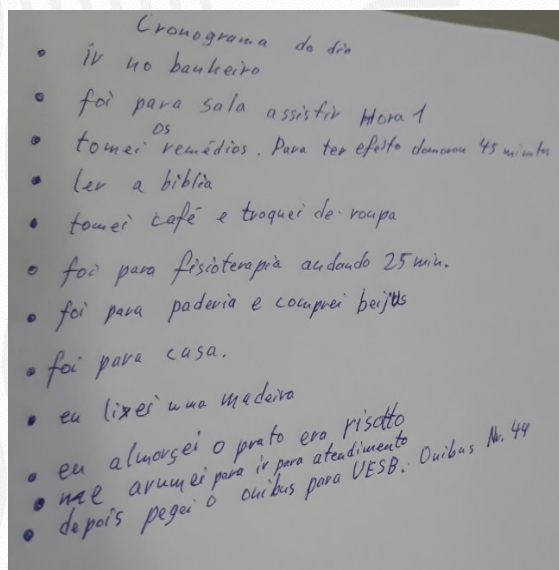 Cronograma do dia
• ir no banheiro
• foi para sala assistir Hora 1
• tomei os remédios. Para ter efeito demorou 45 minutos
• ler a biblia
• tomei café e troquei de roupa
• foi para fisioterapia andando 25 min.
• foi para paderia e comprei beijus
• foi para casa.
• eu lixei uma madeira
• eu almorçei o prato era risotto
• me arumei para ir para atendimento
• depois peguei o onibus para UESB. Onibus Nr. 44